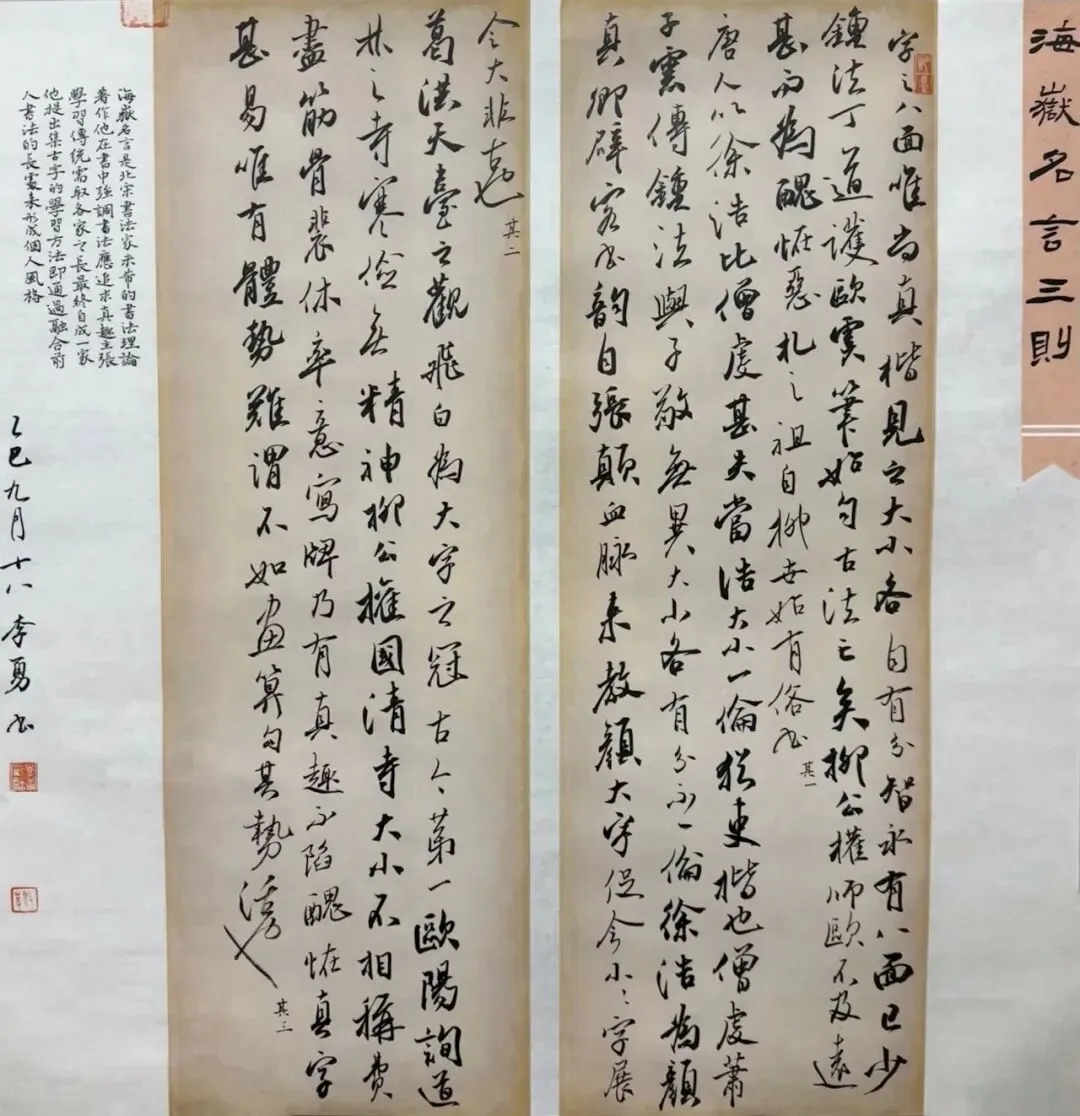 海嶽名言三則
字之八面唯尚真楷見之大小各自有分智永有八面已少
鍾法丁道護歐虞筆始勻古法亡矣柳公權師歐不及遠
甚而為醜怪惡札之祖自柳世始有俗書 其一
唐人以徐浩比僧虔甚失當浩大小一倫猶吏楷也僧虔蕭
子雲傳鍾法與子敬無異大小各有分不一倫徐浩為顏
真卿辟客書韻自張顛血脈來教顏大字促令小〻字展
令大非古也 其二
葛洪天臺之觀飛白為大字之冠古今第一歐陽詢道
林之寺寒儉無精神柳公權國清寺大小不相稱費
盡筋骨裴休率意寫牌乃有真趣不陷醜怪真字
甚易唯有體勢難謂不如畫算勻其勢活也 其三
海嶽名言是北宋書法家米芾的書法理論
著作他在書中強調書法應追求真趣主張
學習傳統需取各家之長最終自成一家
他提出集古字的學習方法即通過融合前
人書法的長處來形成個人風格
乙巳九月十八 李勇書